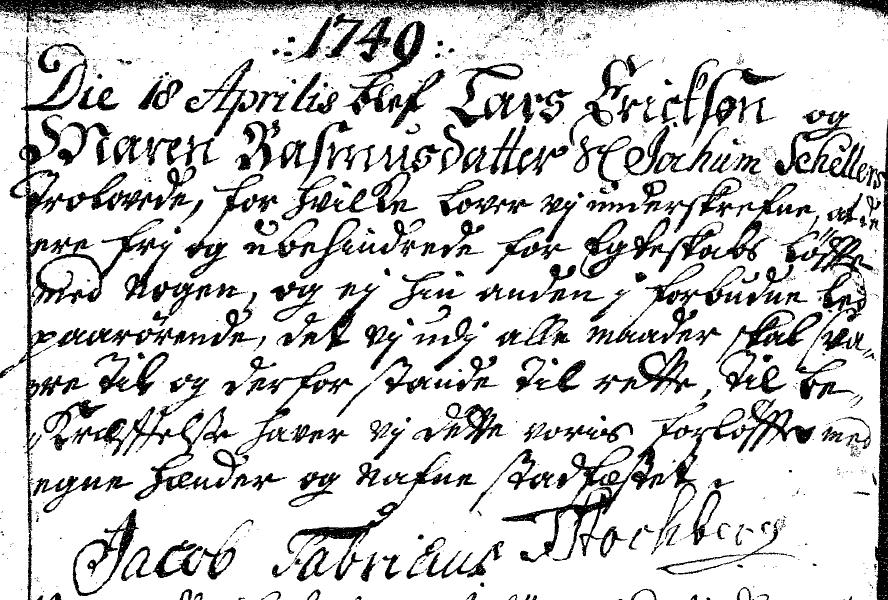 .:1749:.
Die 18 Aprilis blef Lars Erickson og
Maren Rasmusdatter Jochum Schellers
Trolovede, for hvilke lover vj underskrefne, at de
ere frj og ubehindrede for Egteskabs Løffte
med nogen, og ej hin anden j forbudne led
paarørende, det vj udj alle maader skal sva-
re til og derfor stande til rette, til be-
kræfftelse haver vj dette voris forløffte med
egne hænder og nafne stadfæstet.
Jacob Fabricius Stochberg